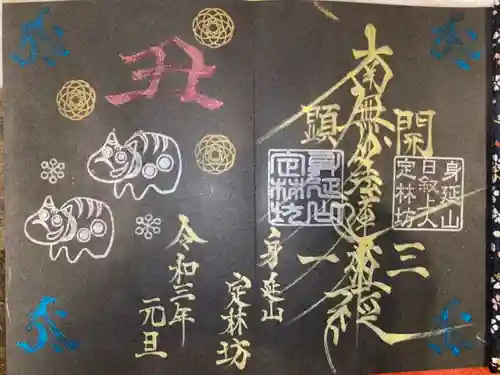 開三
身延山
日叙上人
定林坊
南無妙法蓮華経
顕一
身延山
定林坊
身延山
定林坊
令和三年
元旦
丑